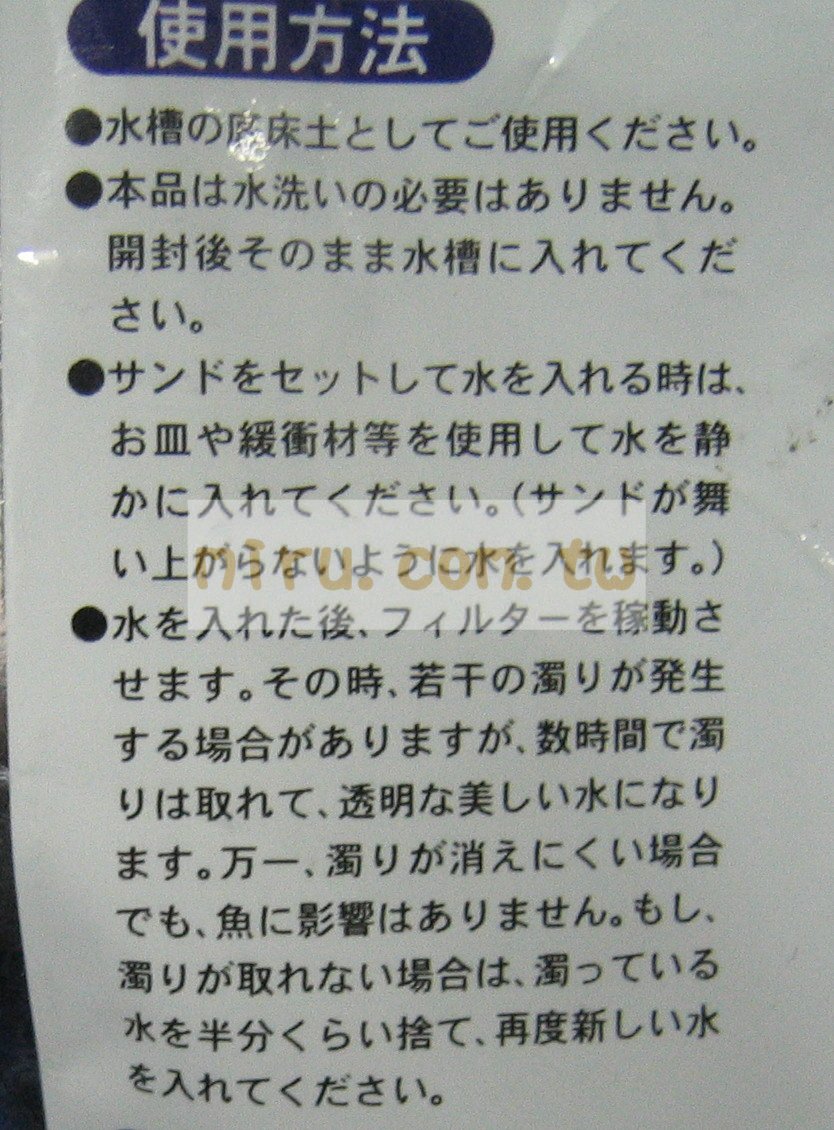 使用方法
●水槽の底床土としてご使用ください。
●本品は水洗いの必要はありません。
開封後そのまま水槽に入れてくだ
さい。
●サンドをセットして水を入れる時は、
お皿や緩衝材等を使用して水を静
かに入れてください。(サンドが舞
い上がらないように水を入れます。)
niru.com.tw
●水を入れた後、フィルターを稼動さ
せます。その時、若干の濁りが発生
する場合がありますが、数時間で濁
りは取れて、透明な美しい水になり
ます。万一、濁りが消えにくい場合
でも、魚に影響はありません。もし、
濁りが取れない場合は、濁っている
水を半分くらい捨て、再度新しい水
を入れてください。